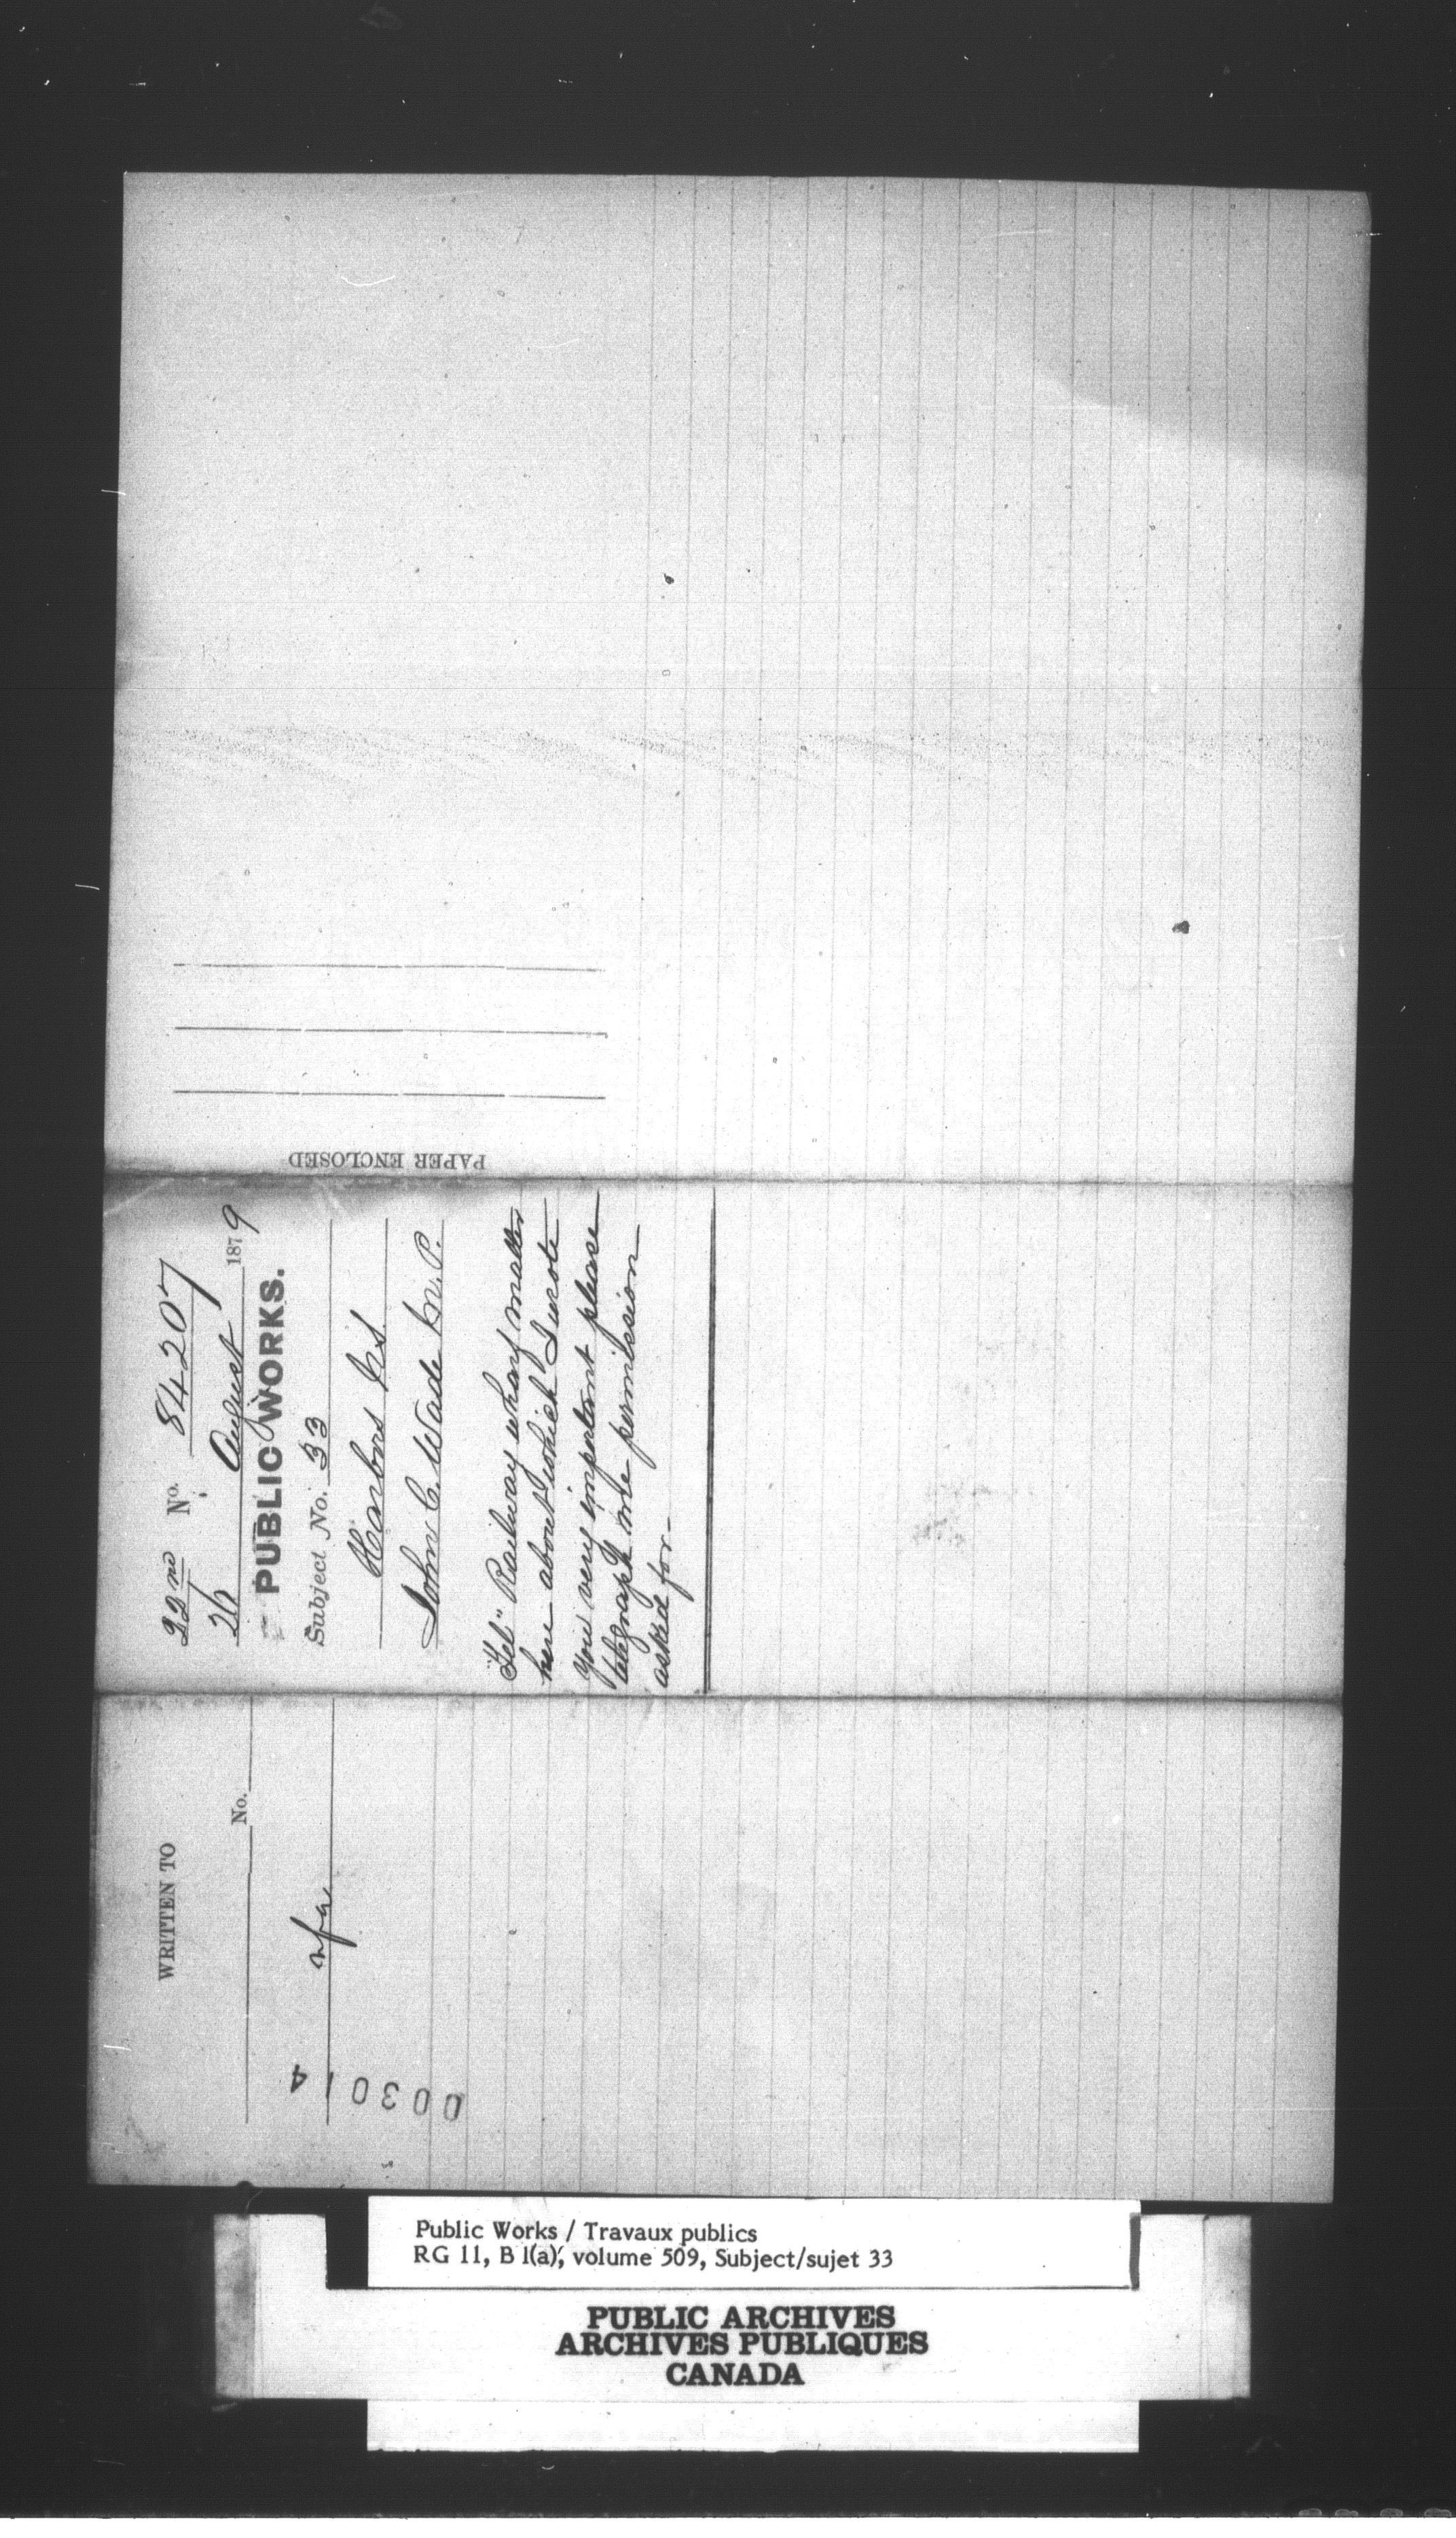 22nd No. 84207
26 August 1879
PUBLIC WORKS.
Subject No. 33
Harbors N.S.
John C. Wade M.P.
"Tel" Railway wharf matter
here about which I wrote
you very important please
telegraph me permission
asked for-
PAPER ENCLOSED
WRITTEN TO
No.
nfa
003014
Public Works / Travaux publics
RG 11, B 1(a), volume 509, Subject/sujet 33
PUBLIC ARCHIVES
ARCHIVES PUBLIQUES
CANADA